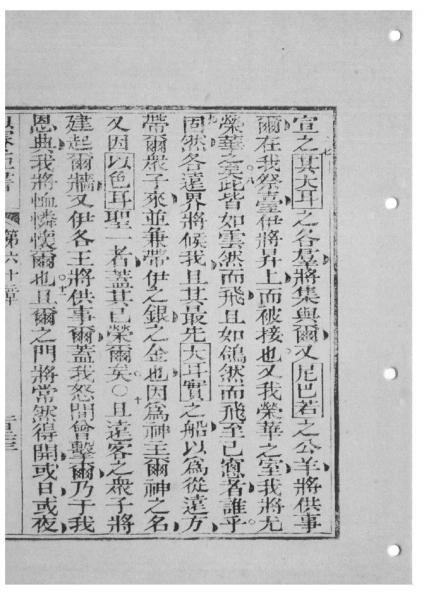 宣之其大耳之谷羣將集與爾又尼巴若之公羊將供事
爾在我祭臺伊將昇上而被接也又我榮華之室我將尤
榮華之矣此皆如雲然而飛且如鴿然而飛至己窻者誰乎
固然各遠界將候我且其最先大耳實之船以爲從遠方
帶爾衆子來並兼帶伊之銀之金也因爲神主爾神之名
又因以色耳聖一者蓋其已榮爾矣○且遠客之衆子將
建起爾牆又伊各王將供事爾蓋我怒間曾擊爾乃于我
恩典我將恤憐懷爾也且爾之門將常然得開或日或夜
第六十章